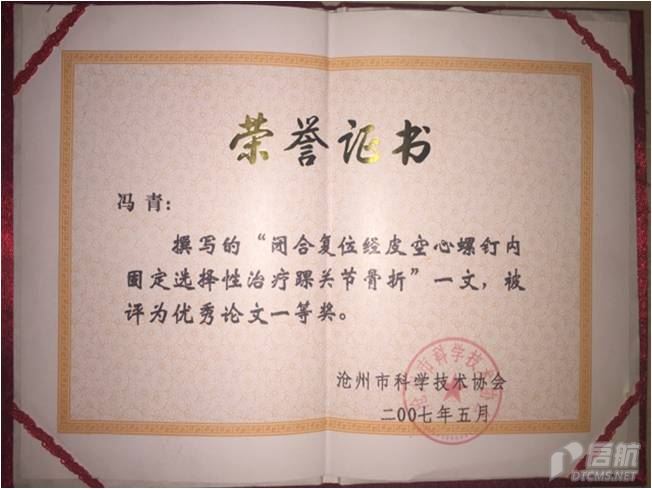 荣誉证书
冯青:
撰写的“闭合复位经皮空心螺钉内
固定选择性治疗踝关节骨折”一文,被
评为优秀论文一等奖。
沧州市科学技术协会
二00七年五月
信航
DTCMS.NET